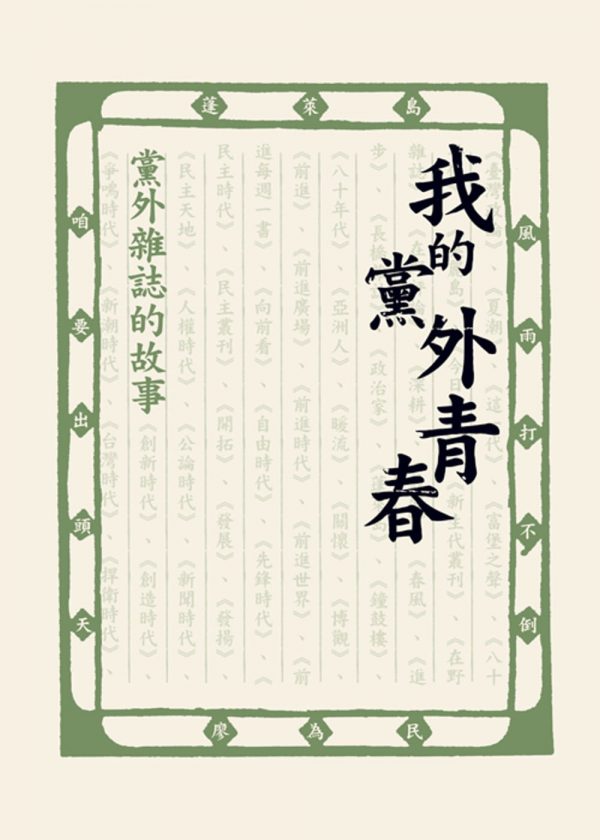 蓬萊島
風雨打不倒
咱要出頭天
我的黨外青春
黨外雜誌的故事
《臺灣
《夏潮》、《這一代》、《富堡之聲》、《八十
島》
今日
代叢刊》、《在野
雜誌
深耕》
《春風》、《進
步》、《長橋
《政治家》
《鐘鼓樓》、
《八十年代》、《亞洲人》、《暖流》、《關懷》、《博觀》
《前進》、《前進廣場》、《前進時代》、《前進世界》、《前
進每週一書》、《向前看》、《自由時代》、《先鋒時代》、《
民主時代》、《民主叢刊》、《開拓》、《發展》、《發揚》、
《民主天地》、《人權時代》、《公論時代》、《新聞時代》、
《創新時代》、《創造時代》、
《爭鳴時代》、《新潮時代》、《台灣時代》、《捍衛時代》、
廖為民